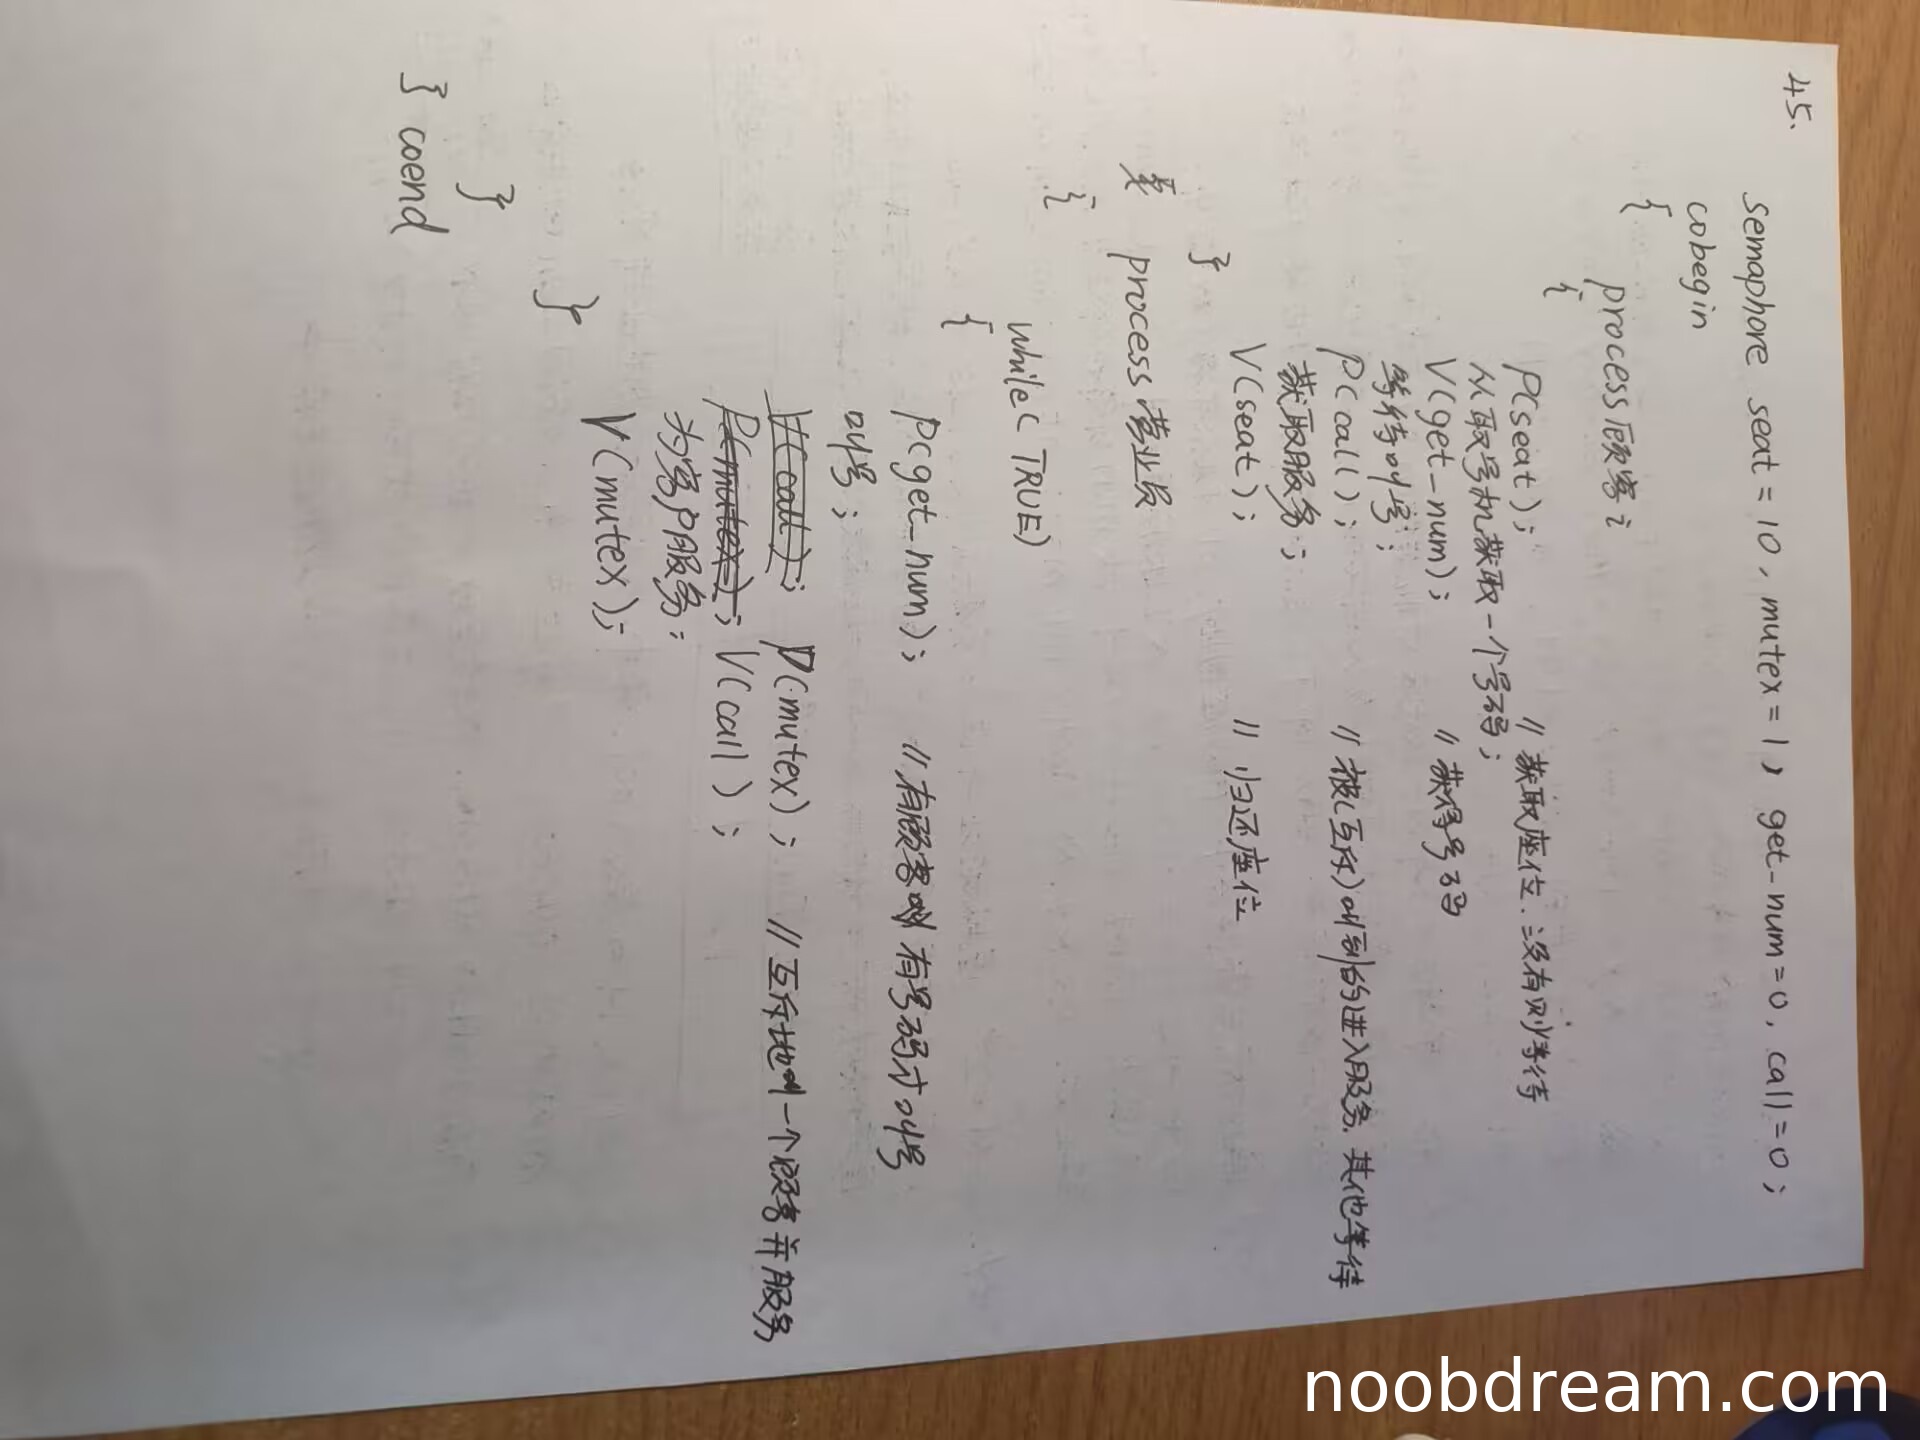 45.
semaphore seat = 10, mutex = 1, get-num = 0, call = 0;
cobegin
{
process 顾客i
{
P(seat); // 获取座位.没有则等待
从取号机获取一个号码;
V(get-num); // 获得号码
等待叫号;
P(call); // 被(互斥)叫到的进入服务.其他等待
获取服务;
V(seat); // 归还座位
}
process 营业员
{
while(TRUE)
{
P(get-num); // 有顾客 有号码才叫号
叫号;
V(call); P(mutex); // 互斥地叫一个顾客并服务
P(mutex); V(call);
为客户服务;
V(mutex);
}
}
} coend
noobdream.com